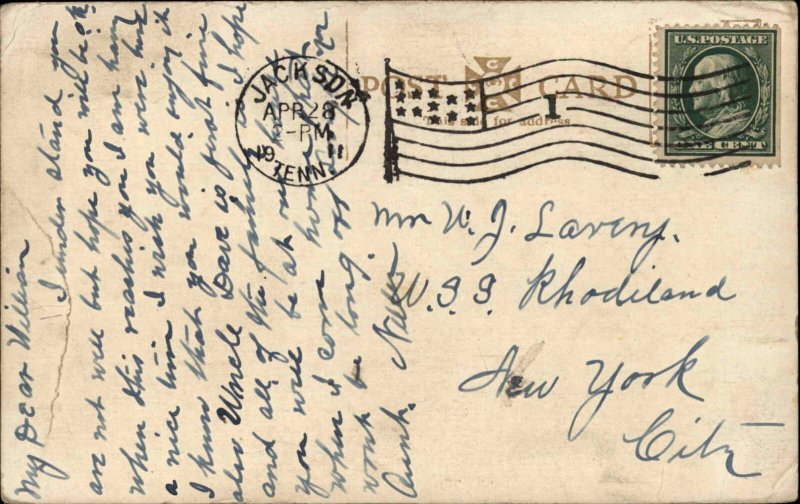 My Dear William
I understand you
are not well but hope you will be ok
when this reaches you I am having
a nice time I wish you were here
I know that you would enjoy it
also Uncle Dave is just fine
and all of the family I hope
you will be at our
when I come home
wont be long off
Aunt. Nellie
JACKSON
APR 28
-PM
1911
TENN.
POST CARD
This side for address
1
U.S. POSTAGE
ONE CENT
Mr W. J. Lavery.
U.S.S Rhodiland
New York
City